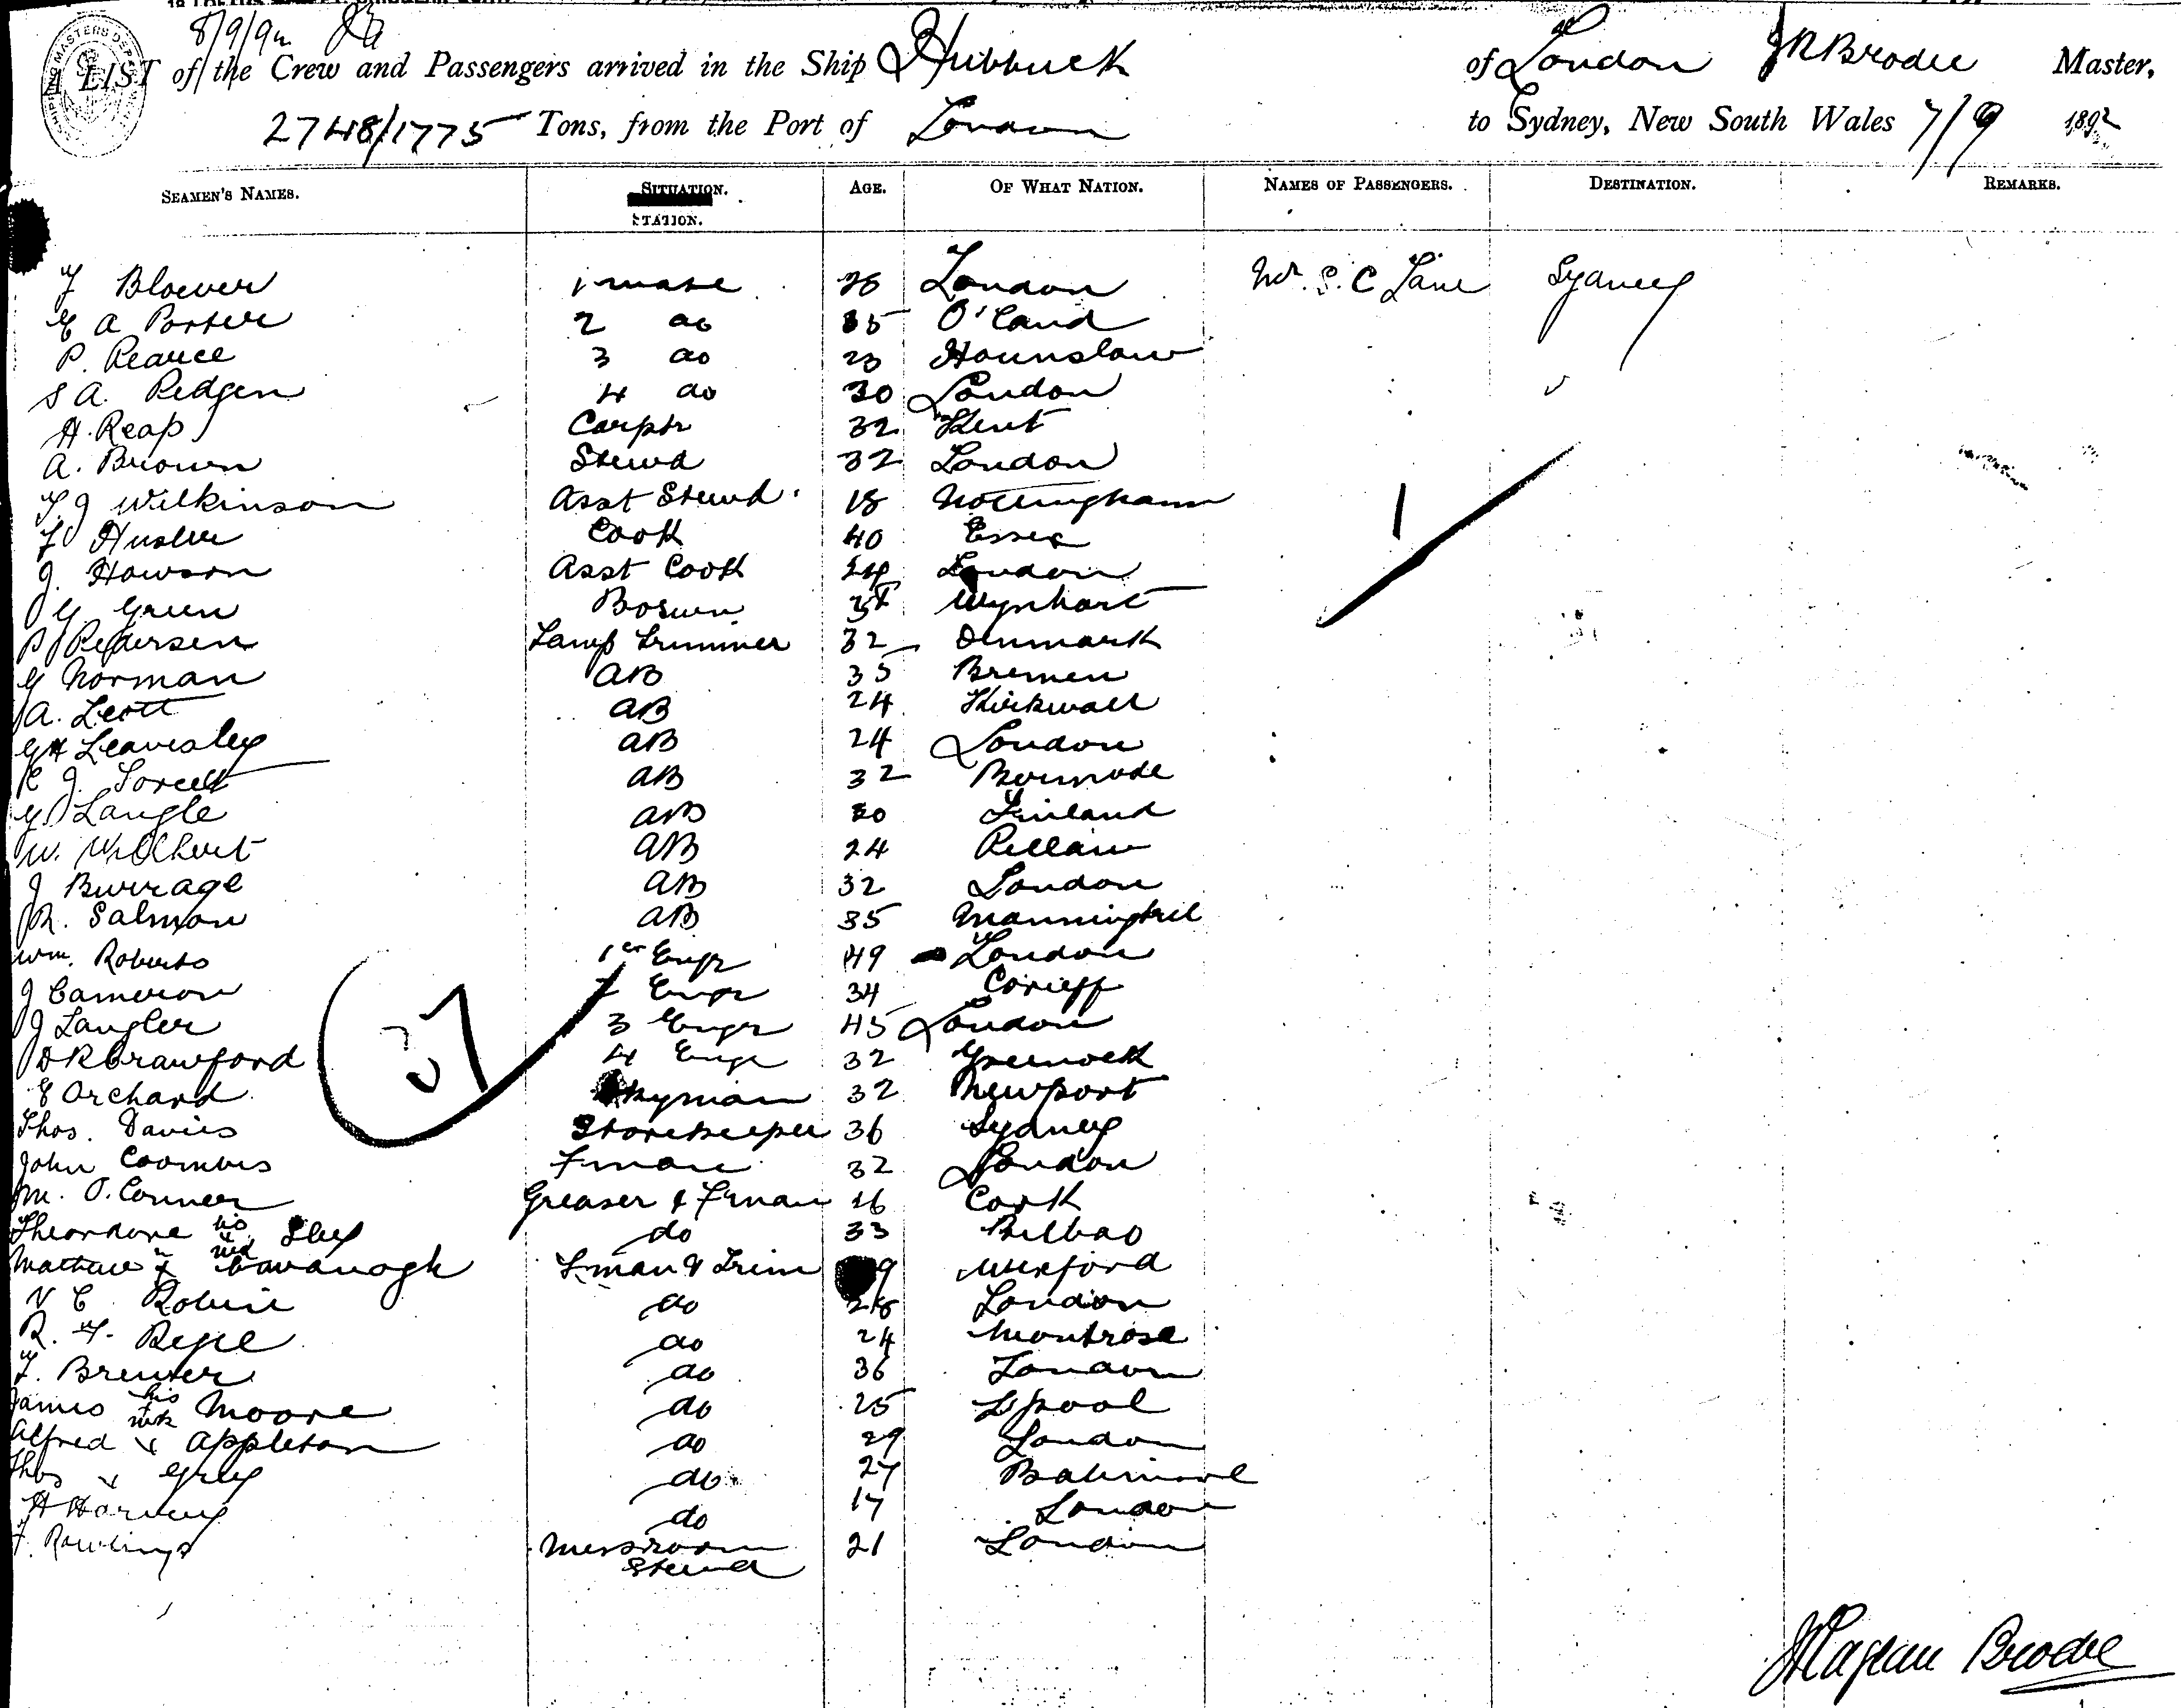 8/9/92
A LIST of the Crew and Passengers arrived in the Ship Hubbuck of London J R Brodie Master,
2748/1775 Tons, from the Port of London to Sydney, New South Wales 7/9 1892
SEAMEN'S NAMES. SITUATION. AGE. OF WHAT NATION. NAMES OF PASSENGERS. DESTINATION. REMARKS.
STATION.
F Blower 1 mate 26 London Mr. S. C Lane Sydney
E A Porter 2 do 35 O'land
P. Pearce 3 do 23 Hounslow
S A. Pedgen 4 do 30 London
H. Reap Carptr 32 Kent
A. Brown Stewd 32 London
T. J Wilkinson Asst Stewd 18 Nottingham
F Husler Cook 40 Essex
J. Howson Asst Cook 24 London
G Green Bosun
P Pedersen Lamp Trimmer 32 Denmark
G Norman AB 35 Bremen
A. Leott AB 24 Kirkwall
G H Leavesley AB 24 London
R J. AB 32
G Langle AB 20 Finland
W. AB 24 Pillau
J Burrage AB 32 London
R. Salmon AB 35 Manningtree
Wm. Roberts 1st Engr 49 London
J Cameron 2 Engr 34 Crieff
J Langler 3 Engr 45 London
D R Crawford 4 Engr 32 Greenock
E Orchard 32 Newport
Thos. Davies Storekeeper 36 Sydney
John Coombes Fman 32 London
M. O. Conner Greaser & Fman 26 Cork
Theordore his x Sley do 33 Bilbao
Mathew x mk Cavanagh Fman & Trim 9 Wexford
N C. Robert do 28 London
R. F. do 24 Montrose
F. Brewer do 36 London
James his x mk Moore do 25 Lpool
Alfred x Appleton do 29 London
Thos x Grey do 27 Baltimore
H Harvey do 17 London
F. Rawlings Messroom Stewd 21 London
37
1
J Maclean Brodie